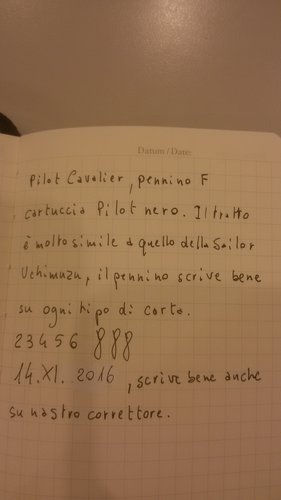 Datum / Date:
Pilot Cavalier, pennino F
cartuccia Pilot nero. Il tratto
è molto simile a quello della Sailor
Uchimuzu, il pennino scrive bene
su ogni tipo di carta.
23456 888
14.XI. 2016, scrive bene anche
su nastro correttore.